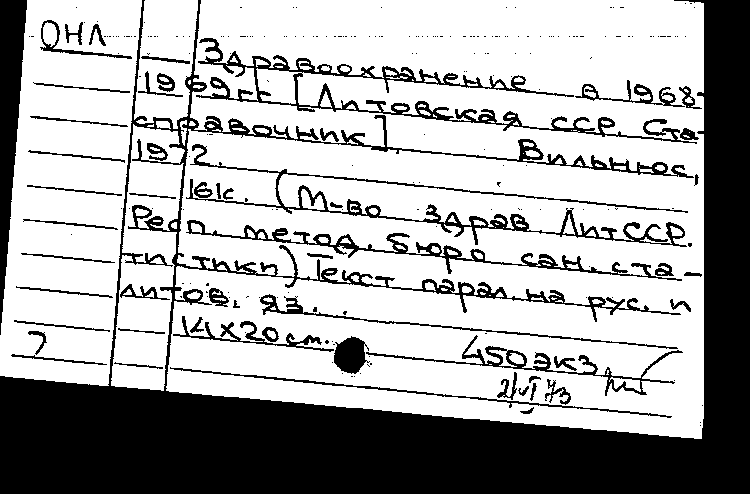 ОНЛ
Здравоохранение в 1968-
1969гг [Литовская ССР. Ста-
справочник]. Вильнюс,
1972.
161с. (М-во здрав ЛитССР.
Респ. метод. бюро сан. ста-
тистики) Текст парал. на рус. и
литов. яз.
14х20см.
450экз
21/VI 73